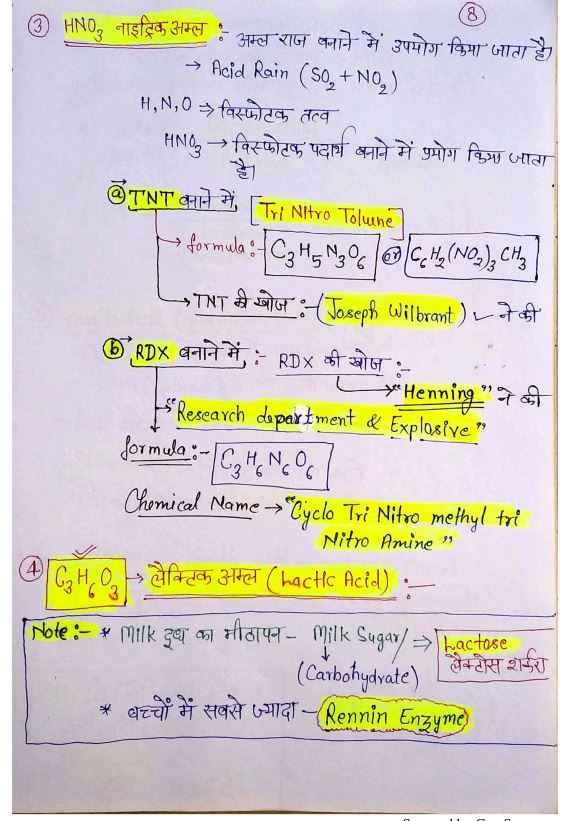 8
③ HNO3 नाइट्रिक अम्ल :- अम्ल राज बनाने में उपयोग किया जाता है।
→ Acid Rain (SO2 + NO2)
H, N, O ⇒ विस्फोटक तत्व
HNO3 → विस्फोटक पदार्थ बनाने में प्रयोग किया जाता
है।
ⓐ TNT बनाने में, [Tri Nitro Toluene]
→ formula :- C3H5N3O6 or C6H2(NO2)3CH3
→ TNT की खोज :- (Joseph Wilbrant) ✓ ने की
ⓑ RDX बनाने में :- RDX की खोज :-
→ "Henning" ने की
→ "Research department & Explosive"
formula :- C3H6N6O6
Chemical Name → "Cyclo Tri Nitro methyl tri
Nitro Amine"
④ C3H6O3 → लैक्टिक अम्ल (Lactic Acid) :-
Note :- * Milk दूध का मीठापन - Milk Sugar/ ⇒ Lactose
(Carbohydrate) लैक्टोस शर्करा
* बच्चों में सबसे ज्यादा - Rennin Enzyme